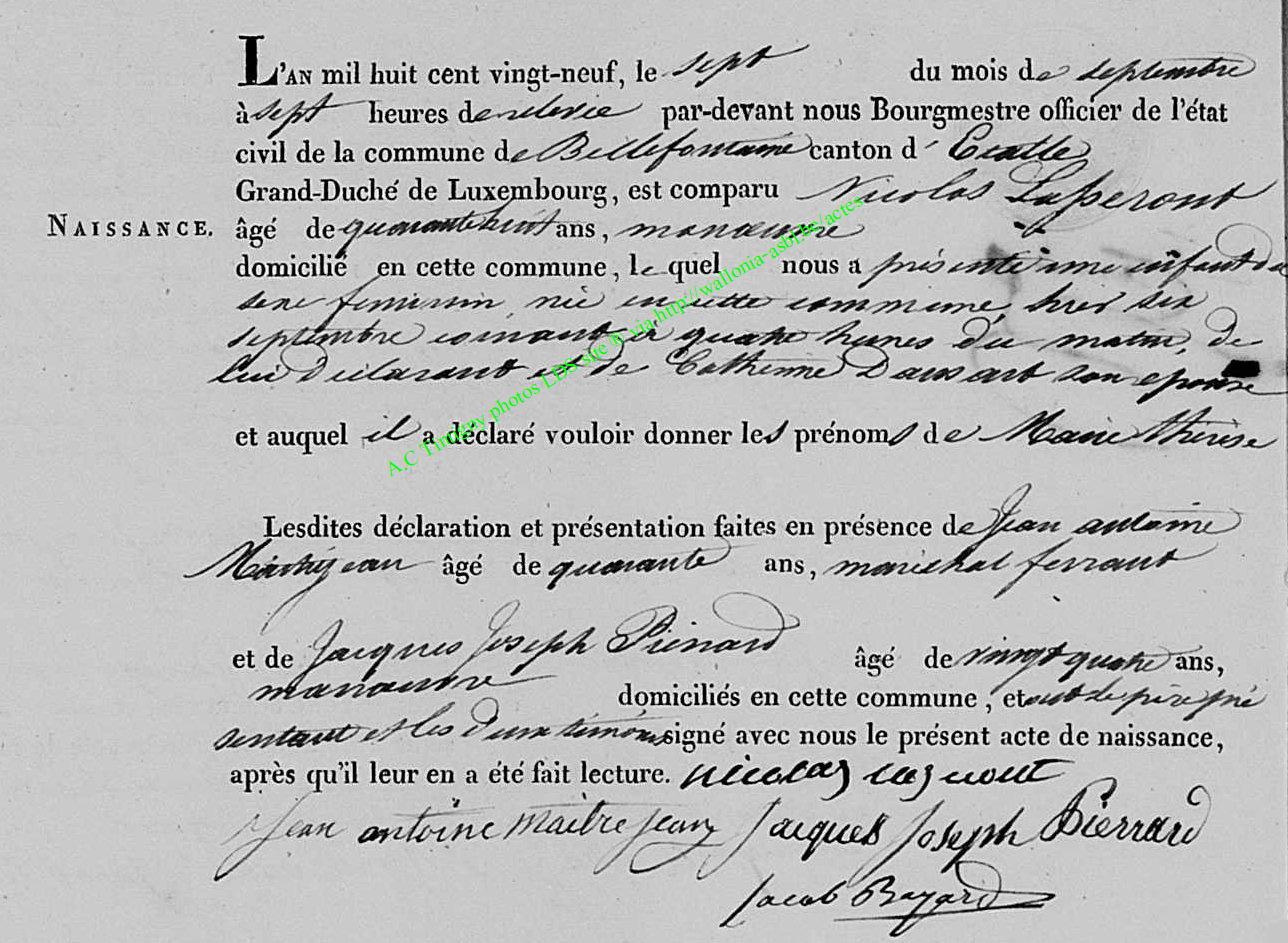 L'AN mil huit cent vingt-neuf, le sept du mois de septembre
à sept heures de relevée par-devant nous Bourgmestre officier de l'état
civil de la commune de Bellefontaine canton d'Etalle
Grand-Duché de Luxembourg, est comparu Nicolas
NAISSANCE. âgé de quarante huit ans, manœuvre
domicilié en cette commune, lequel nous a présenté une enfant du
sexe feminin née en cette commune, hier six
septembre courant à quatre heures du matin, de
lui déclarant et de Catherine Dansart son epouse
et auquel il a déclaré vouloir donner les prénoms de Marie thérèse
Lesdites déclaration et présentation faites en présence de Jean antoine
âgé de quarante ans, maréchal ferrant
et de Jacques Joseph Piérard âgé de vingt quatre ans,
manœuvre domiciliés en cette commune, et ont le père pré
sentant et les deux témoins signé avec nous le présent acte de naissance,
après qu'il leur en a été fait lecture. nicolas
Jean antoine Maitrejean Jacques Joseph Pierrard
Jacob Bayard
A.C Tintigny photos LDS site © via http://wallonia-asbl.be/actes